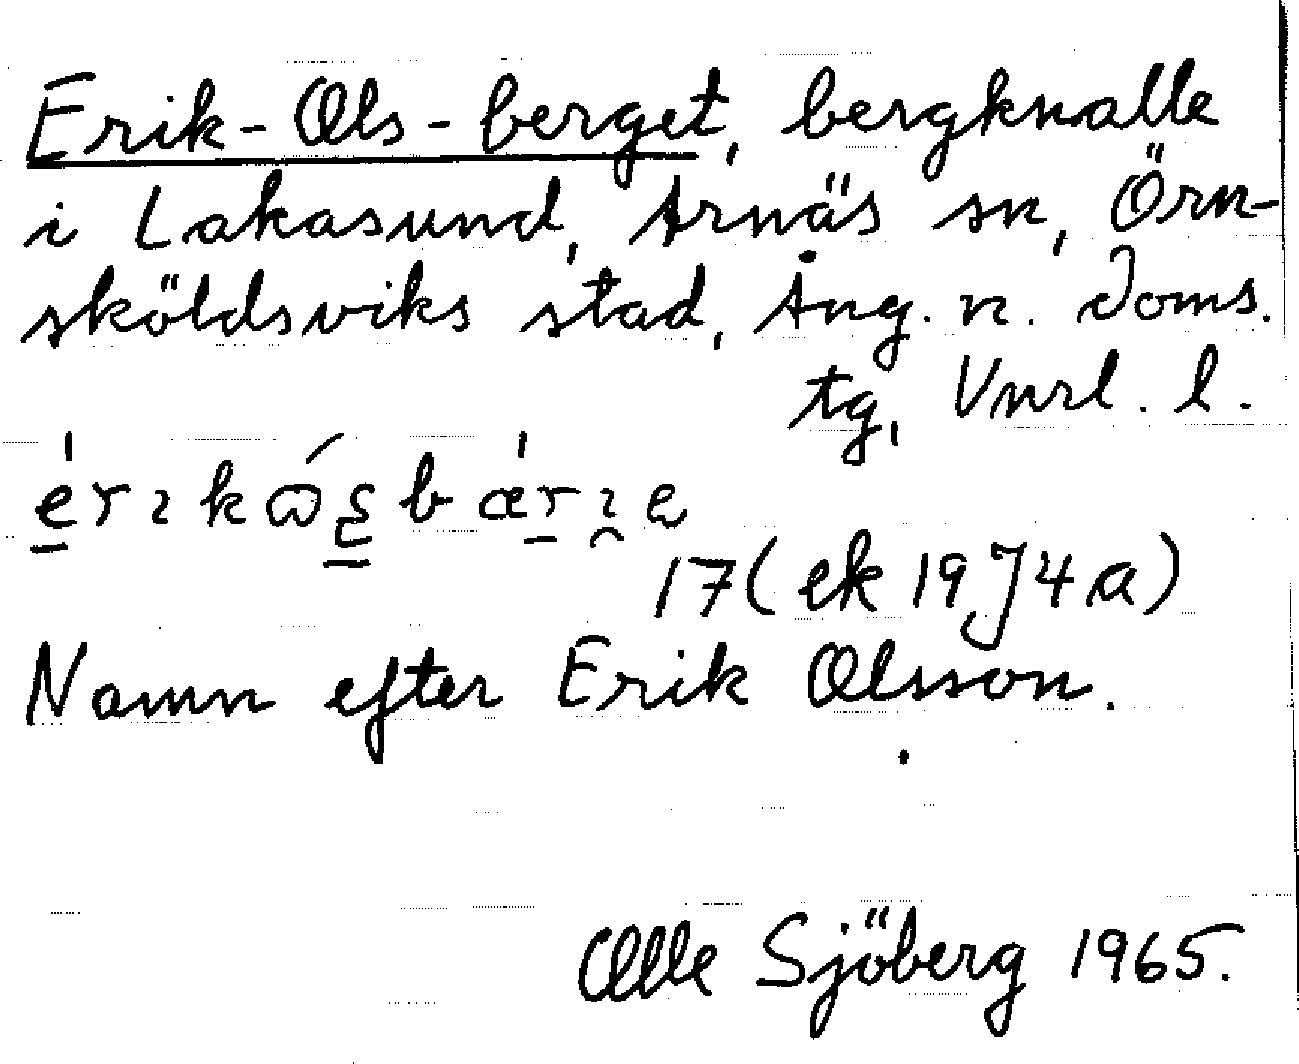 Erik-Ols-berget, bergknalle
i Lakasund, Arnäs sn, Örn-
sköldsviks stad, Ång. n. Doms.
tg, Vnrl. l.
17 (ek 19J4a)
Namn efter Erik Olsson.
Olle Sjöberg 1965.